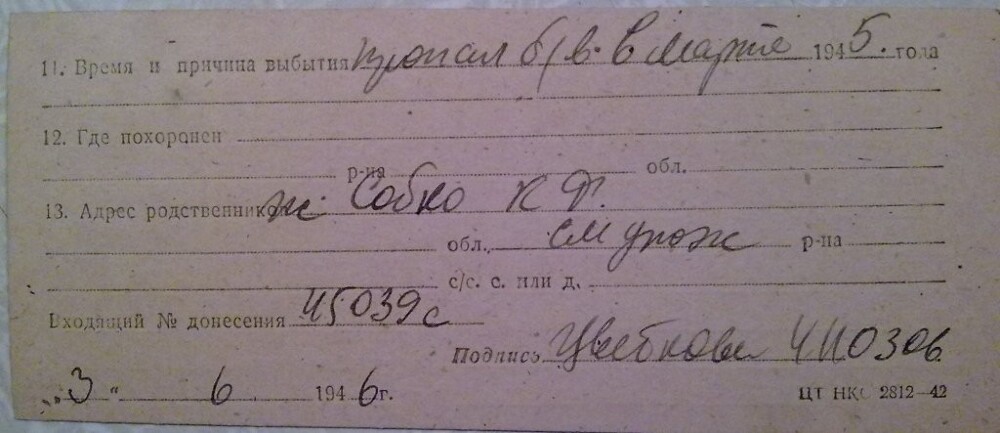 11. Время и причина выбытия пропал б/в. в марте 1945. года
12. Где похоронен
р-на обл.
13. Адрес родственников ж Собко К Ф.
обл. см урож р-на
с/с. с. или д.
Входящий № донесения 45039с
Подпись Цветкова
„3“ 6 1946г. ЦТ НКО 2812—42